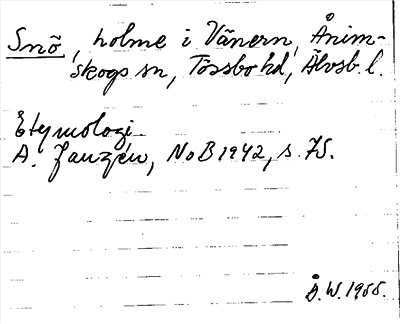 Snö, holme i Vänern, Ånim-
skogs sn, Tössbo hd, Älvsb. l.
Etymologi
A. Janzén, NoB 1942, s. 75.
Å.W. 1955.